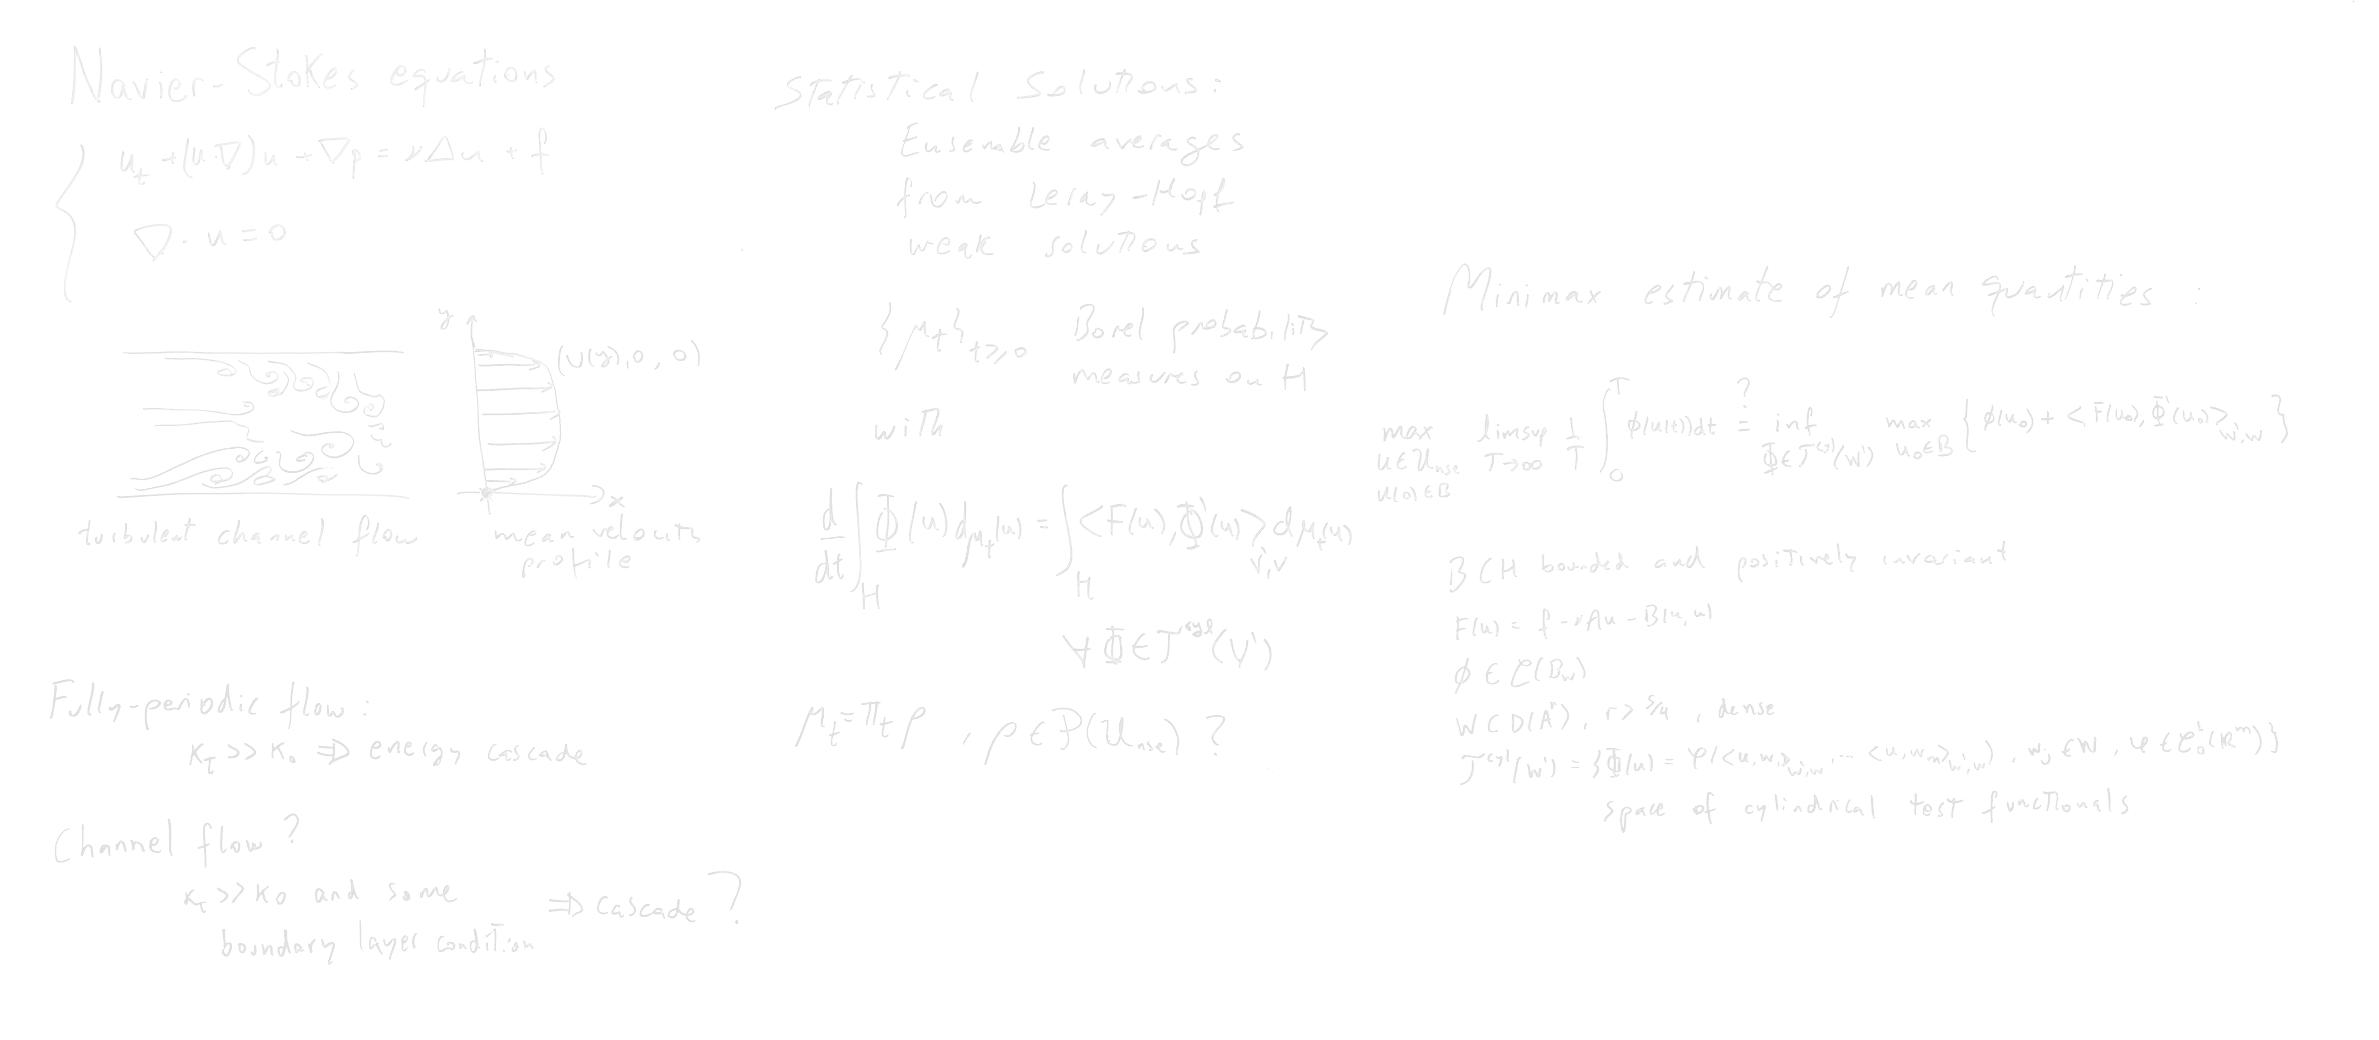 Navier-Stokes equations
u_t + (u·∇)u + ∇p = νΔu + f
∇·u = 0
y
(U(y), 0, 0)
x
turbulent channel flow
mean velocity
profile
Fully-periodic flow:
κ_τ >> κ_0 ⇒ energy cascade
Channel flow?
κ_τ >> κ_0 and some
boundary layer condition
⇒ cascade?
Statistical Solutions:
Ensemble averages
from Leray-Hopf
weak solutions
{μ_t}_{t≥0} Borel probability
measures on H
with
d/dt ∫_H Φ(u) dμ_t(u) = ∫_H <F(u), Φ'(u)>_{V',V} dμ_t(u)
∀ Φ ∈ T^{cyl}(V')
μ_t = Π_t ρ, ρ ∈ P(U_nse)?
Minimax estimate of mean quantities:
max_{u∈U_nse, u(0)∈B} limsup_{T→∞} 1/T ∫_0^T φ(u(t))dt =? inf_{Φ∈T^{cyl}(W')} max_{u_0∈B} {φ(u_0) + <F(u_0), Φ'(u_0)>_{W',W}}
B ⊂ H bounded and positively invariant
F(u) = f - νAu - B(u,u)
φ ∈ C(B_w)
W ⊂ D(A^r), r > 5/4, dense
T^{cyl}(W') = {Φ(u) = φ(<u,w_1>_{W',W}, ... <u,w_m>_{W',W}), w_j ∈ W, φ ∈ C_0^1(R^m)}
space of cylindrical test functionals